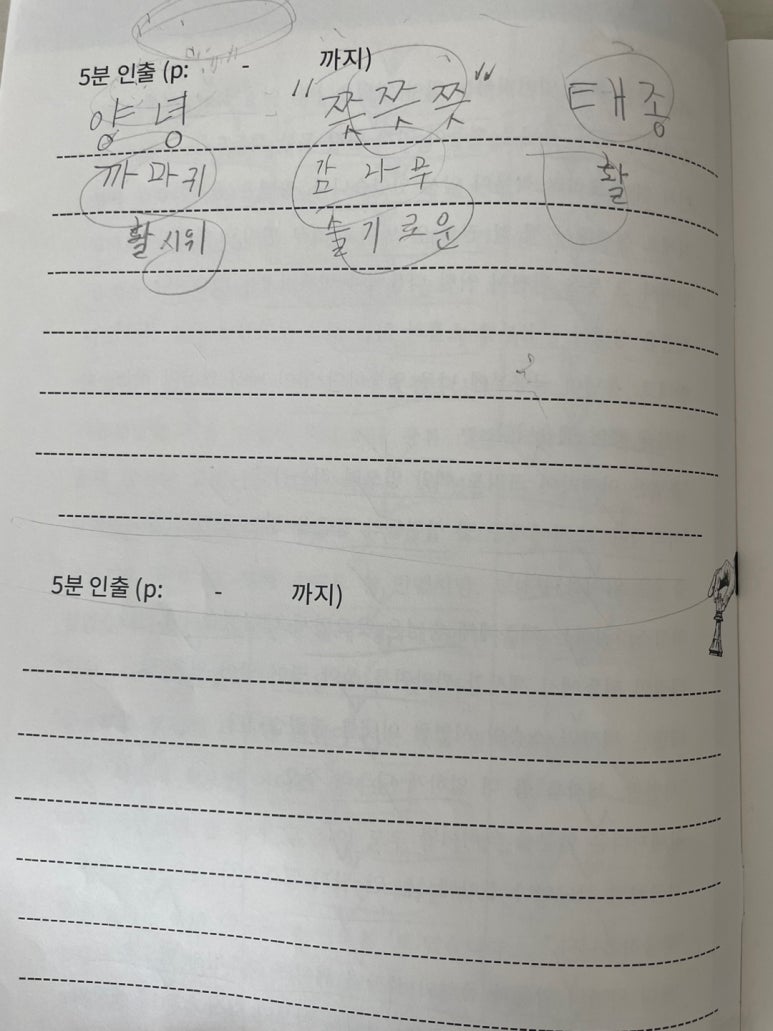 5분 인출 (p: - 까지)
양녕 "쯧쯧쯧" 태종
까마귀 감나무 활
활시위 슬기로운
5분 인출 (p: - 까지)